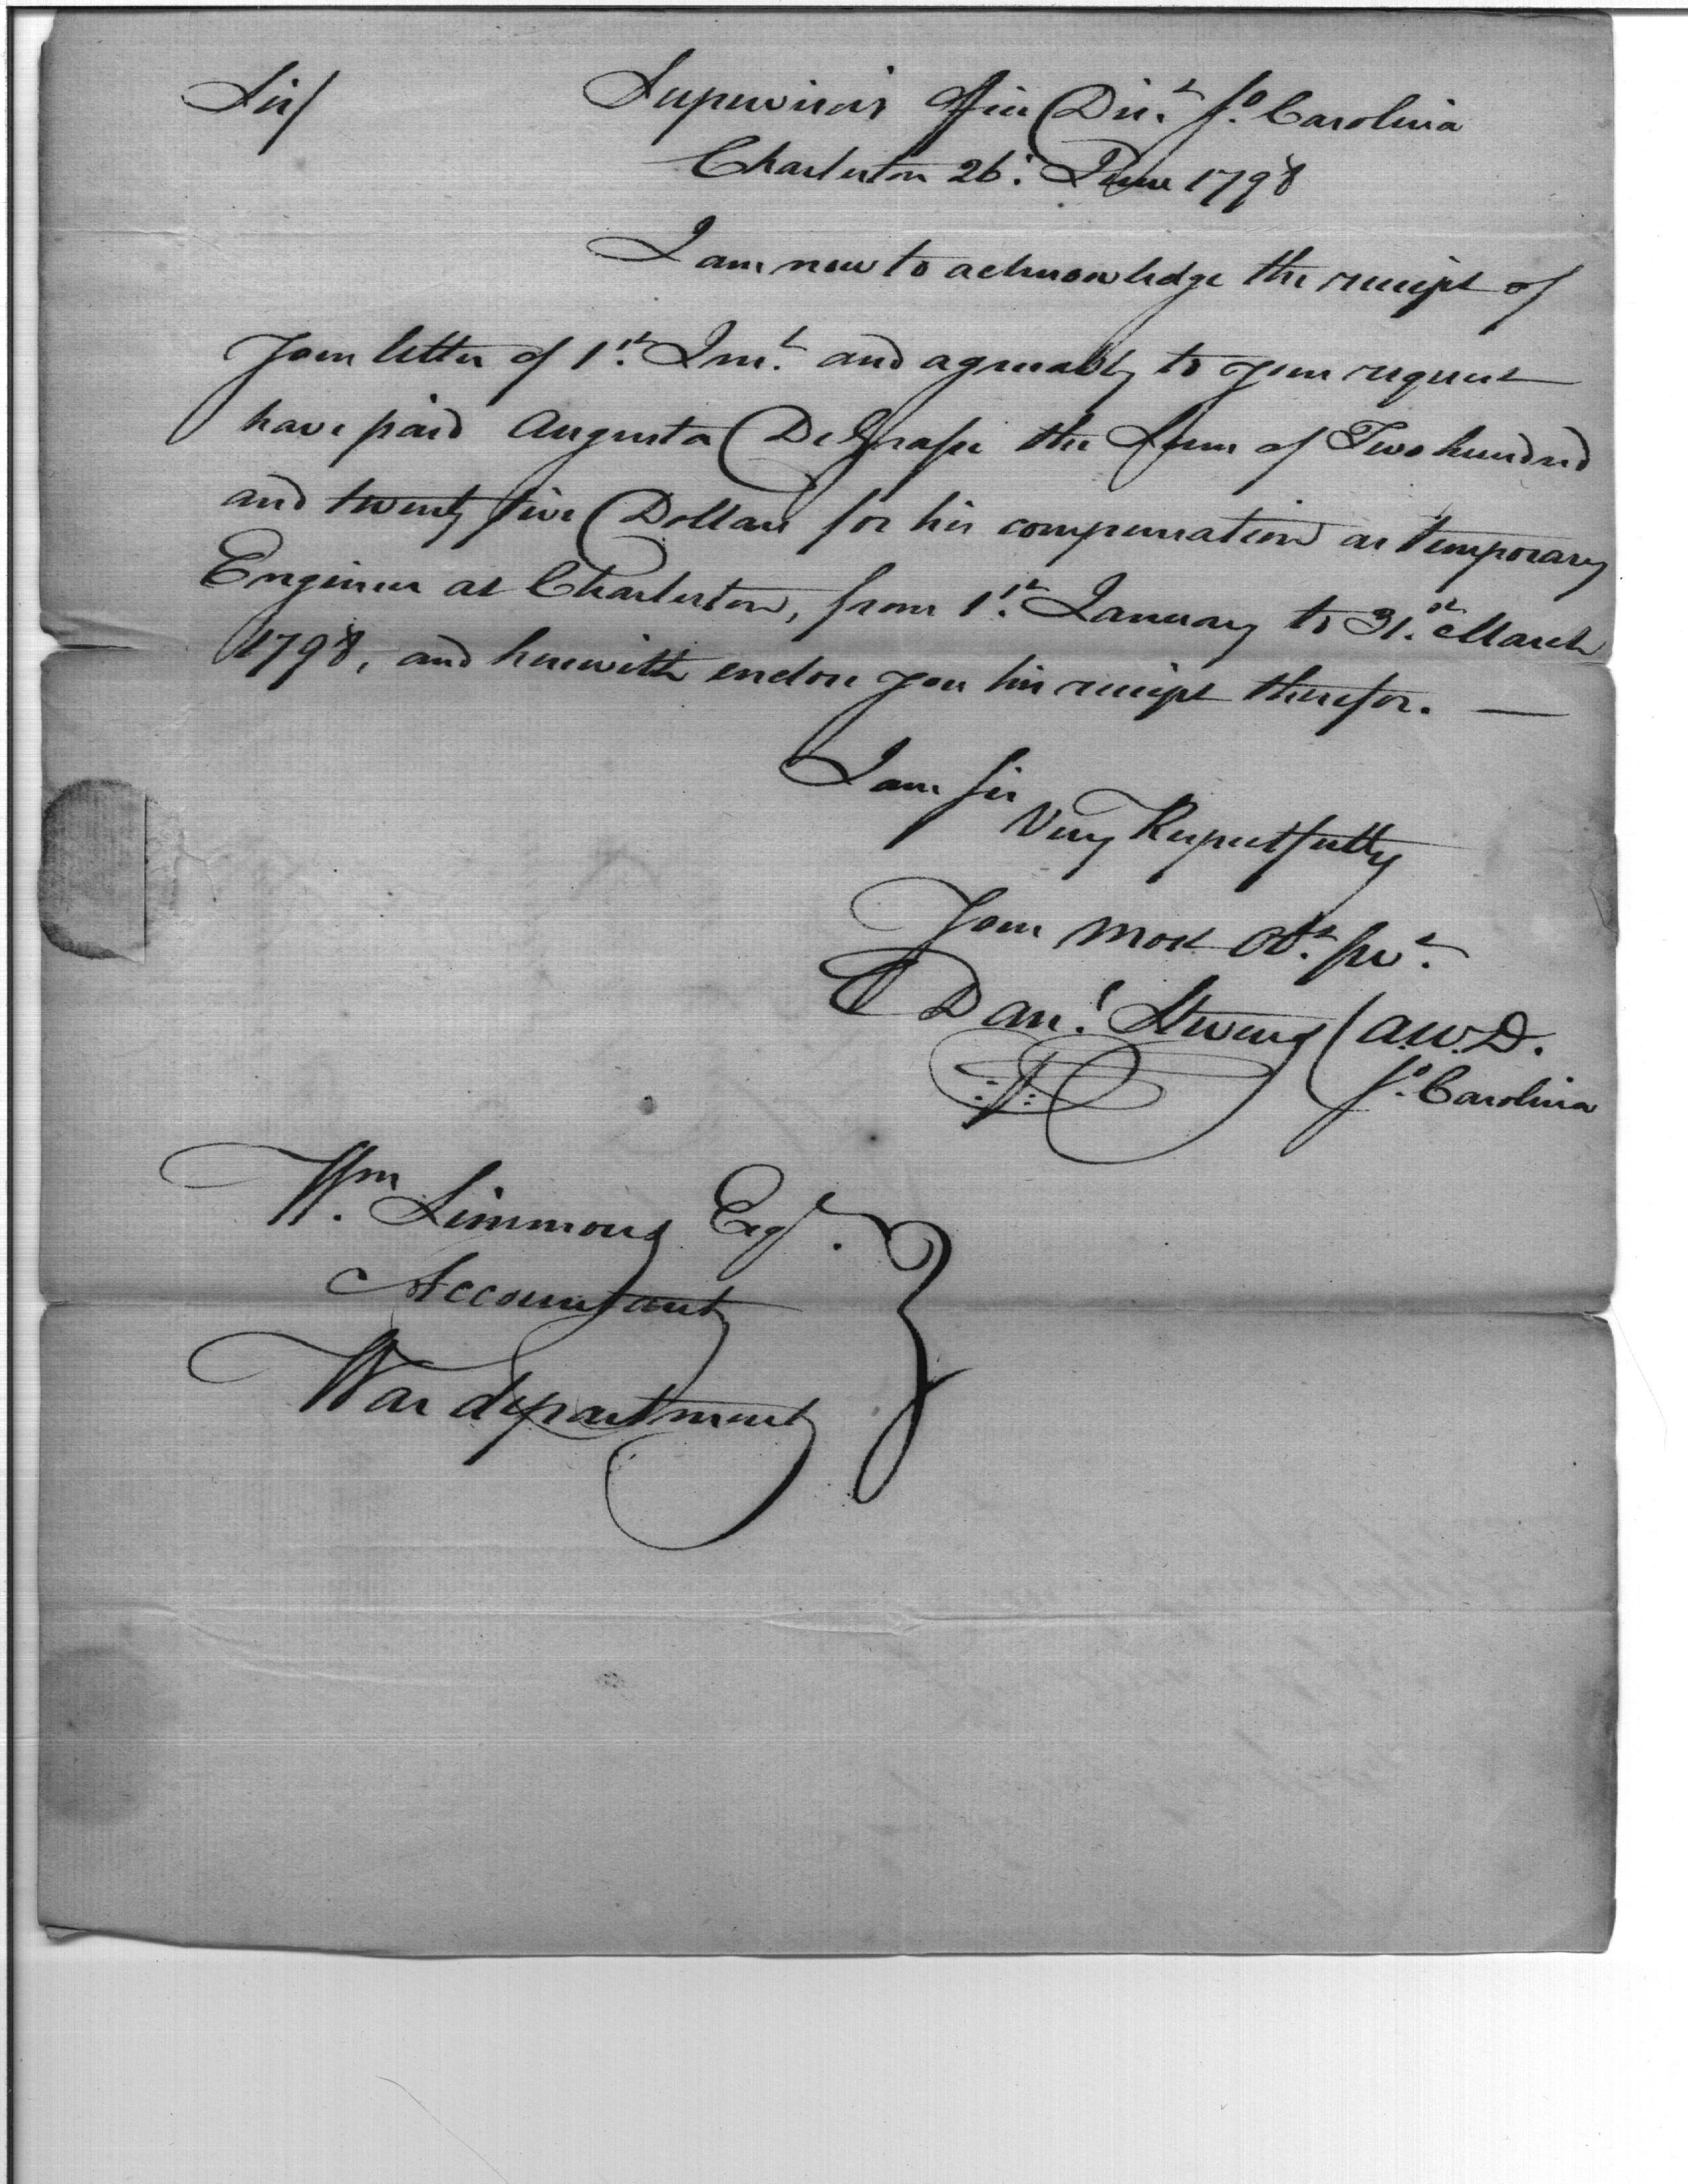 Sir/ Supervisors Office Dist. So. Carolina
Charleston 26. June 1798
I am now to acknowledge the receipt of
your letter of 1st. Inst. and agreeably to your request
have paid Augusta DeGrasse the Sum of Two hundred
and twenty five Dollars for his compensation as temporary
Engineer at Charleston, from 1st. January to 31st. March
1798, and herewith enclose you his receipt therefor. —
I am Sir
Very Respectfully
Your most Obt. Svt.
Danl. Stevens A.W.D.
So. Carolina
Wm. Simmons Esqr.
Accountant
War department